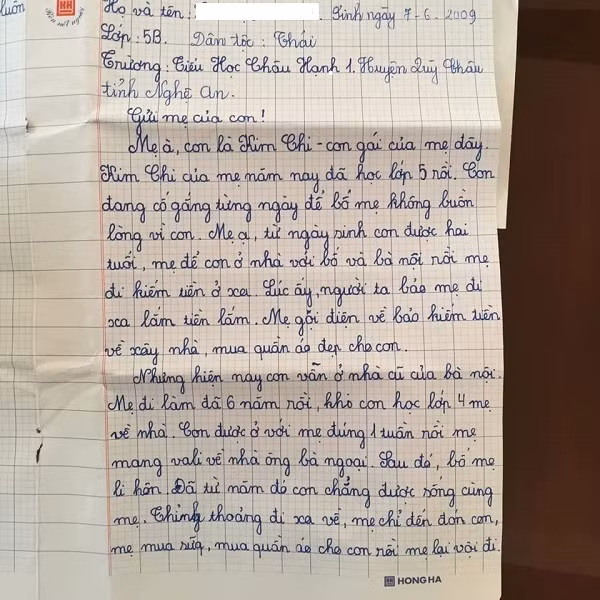 luôn
HH
Họ và tên: Sinh ngày 7-6.2009
Lớp: 5B. Dân tộc: Thái
Trường: Tiểu Học Châu Hạnh 1. Huyện Quỳ Châu
tỉnh Nghệ An.
Gửi mẹ của con!
Mẹ à, con là Kim Chi - con gái của mẹ đây.
Kim Chi của mẹ năm nay đã học lớp 5 rồi. Con
đang cố gắng từng ngày để bố mẹ không buồn
lòng vì con. Mẹ ạ, từ ngày sinh con được hai
tuổi, mẹ để con ở nhà với bố và bà nội rồi mẹ
đi kiếm tiền ở xa. Lúc ấy, người ta bảo mẹ đi
xa lắm tiền lắm. Mẹ gọi điện về bảo kiếm tiền
về xây nhà, mua quần áo đẹp cho con.
Nhưng hiện nay con vẫn ở nhà cũ của bà nội.
Mẹ đi làm đã 6 năm rồi, khi con học lớp 4 mẹ
về nhà. Con được ở với mẹ đúng 1 tuần rồi mẹ
mang vali về nhà ông bà ngoại. Sau đó, bố mẹ
li hôn. Đã từ năm đó con chẳng được sống cùng
mẹ. Thỉnh thoảng đi xa về, mẹ chỉ đến đón con,
mẹ mua sữa, mua quần áo cho con rồi mẹ lại vội đi.
HONG HA